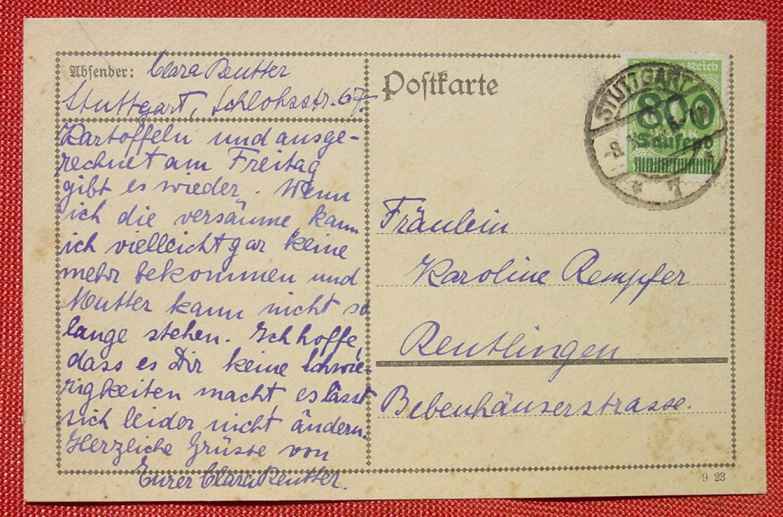 Absender: Clara Reutter
Stuttgart, Schloßstr. 67.
Kartoffeln und ausge-
rechnet am Freitag
gibt es wieder. Wenn
ich die versäume kann
ich vielleicht gar keine
mehr bekommen und
Mutter kann nicht so
lange stehen. Ich hoffe,
dass es Dir keine schwie-
rigkeiten macht es lässt
sich leider nicht ändern.
Herzliche Grüsse von
Eurer Clara Reutter.
Postkarte
Reich
800
Tausend
STUTTGART
Fräulein
Karoline Rempfer
Reutlingen
Bebenhäuserstrasse.
9 23